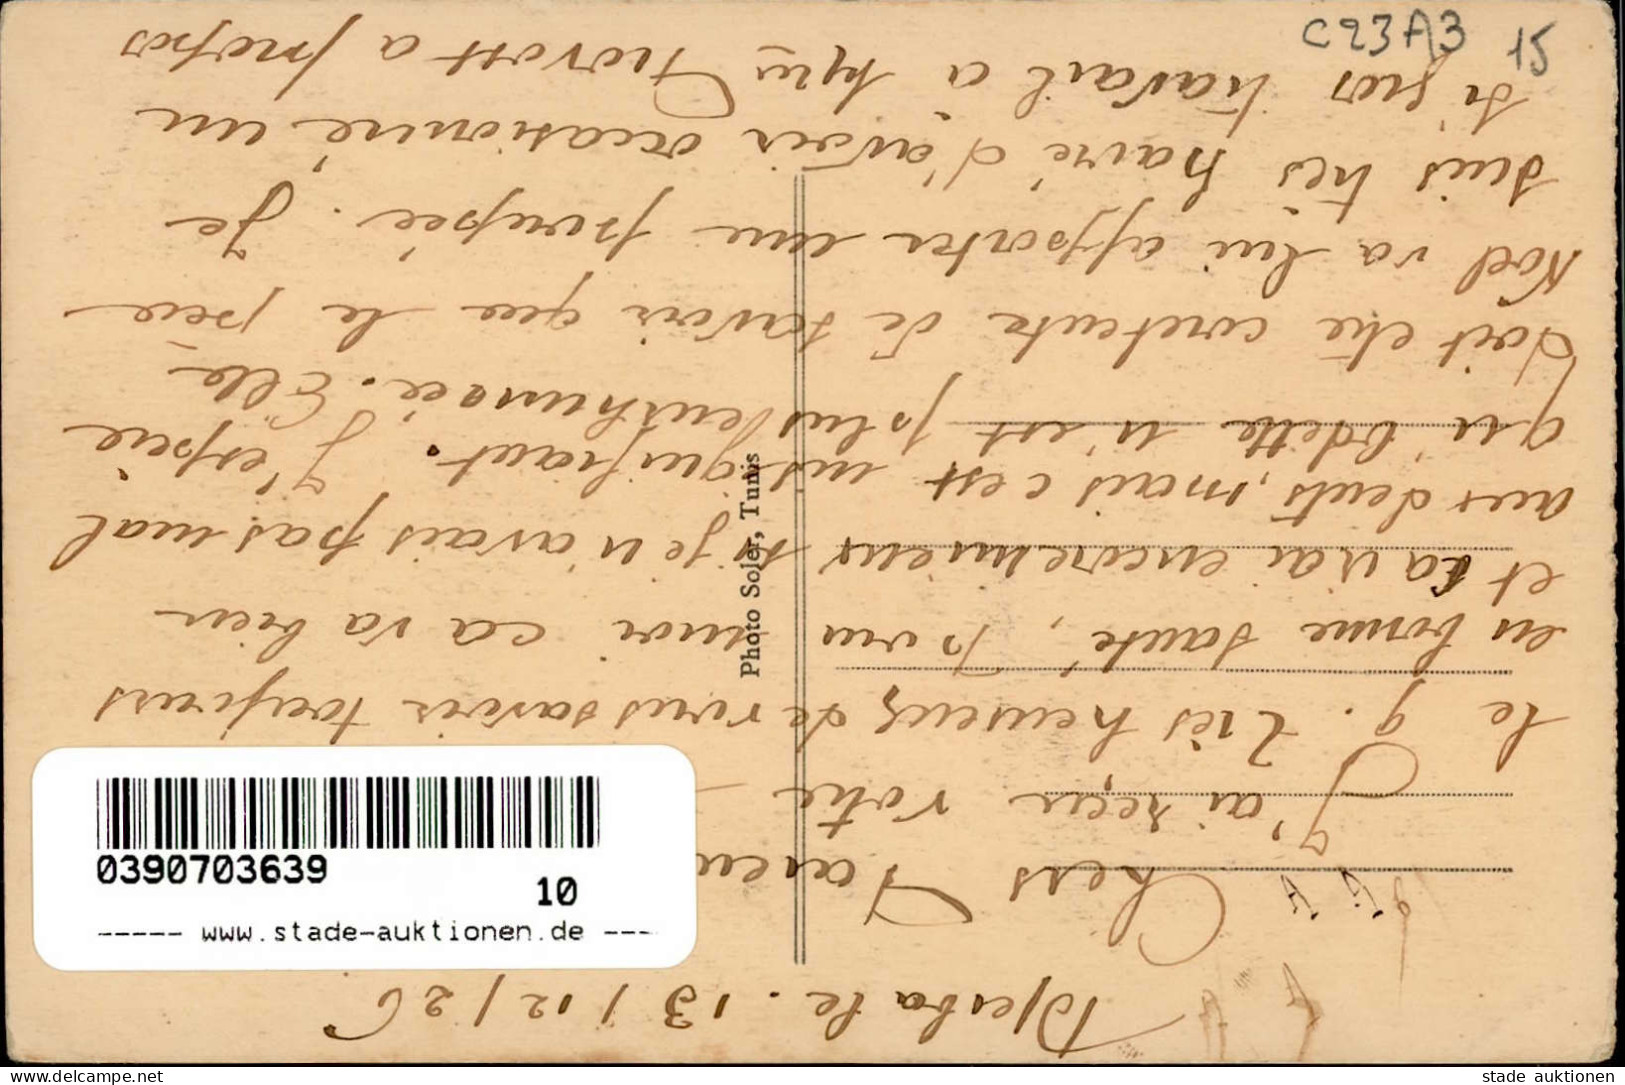 Djerba le. 13/12/26
Chers Paren
J'ai reçu votre
le 9. Très heureux de vous savoir toujours
en bonne santé, pour moi ca va bien
et ca irai encore mieux si je n'avais pas mal
aux dents, mais c'est insignifiant. J'espère
qu'Odette n'est plus enrhumée. Elle
doit etre contente de savoir que le père
Noël va lui apporter une poupée. Je
suis très navré d'avoir occasionné un
si gros travail a Mr Provost a propos
C23A3
15
Photo Soler, Tunis
0390703639
10
----- www.stade-auktionen.de ---
www.delcampe.net
stade auktionen